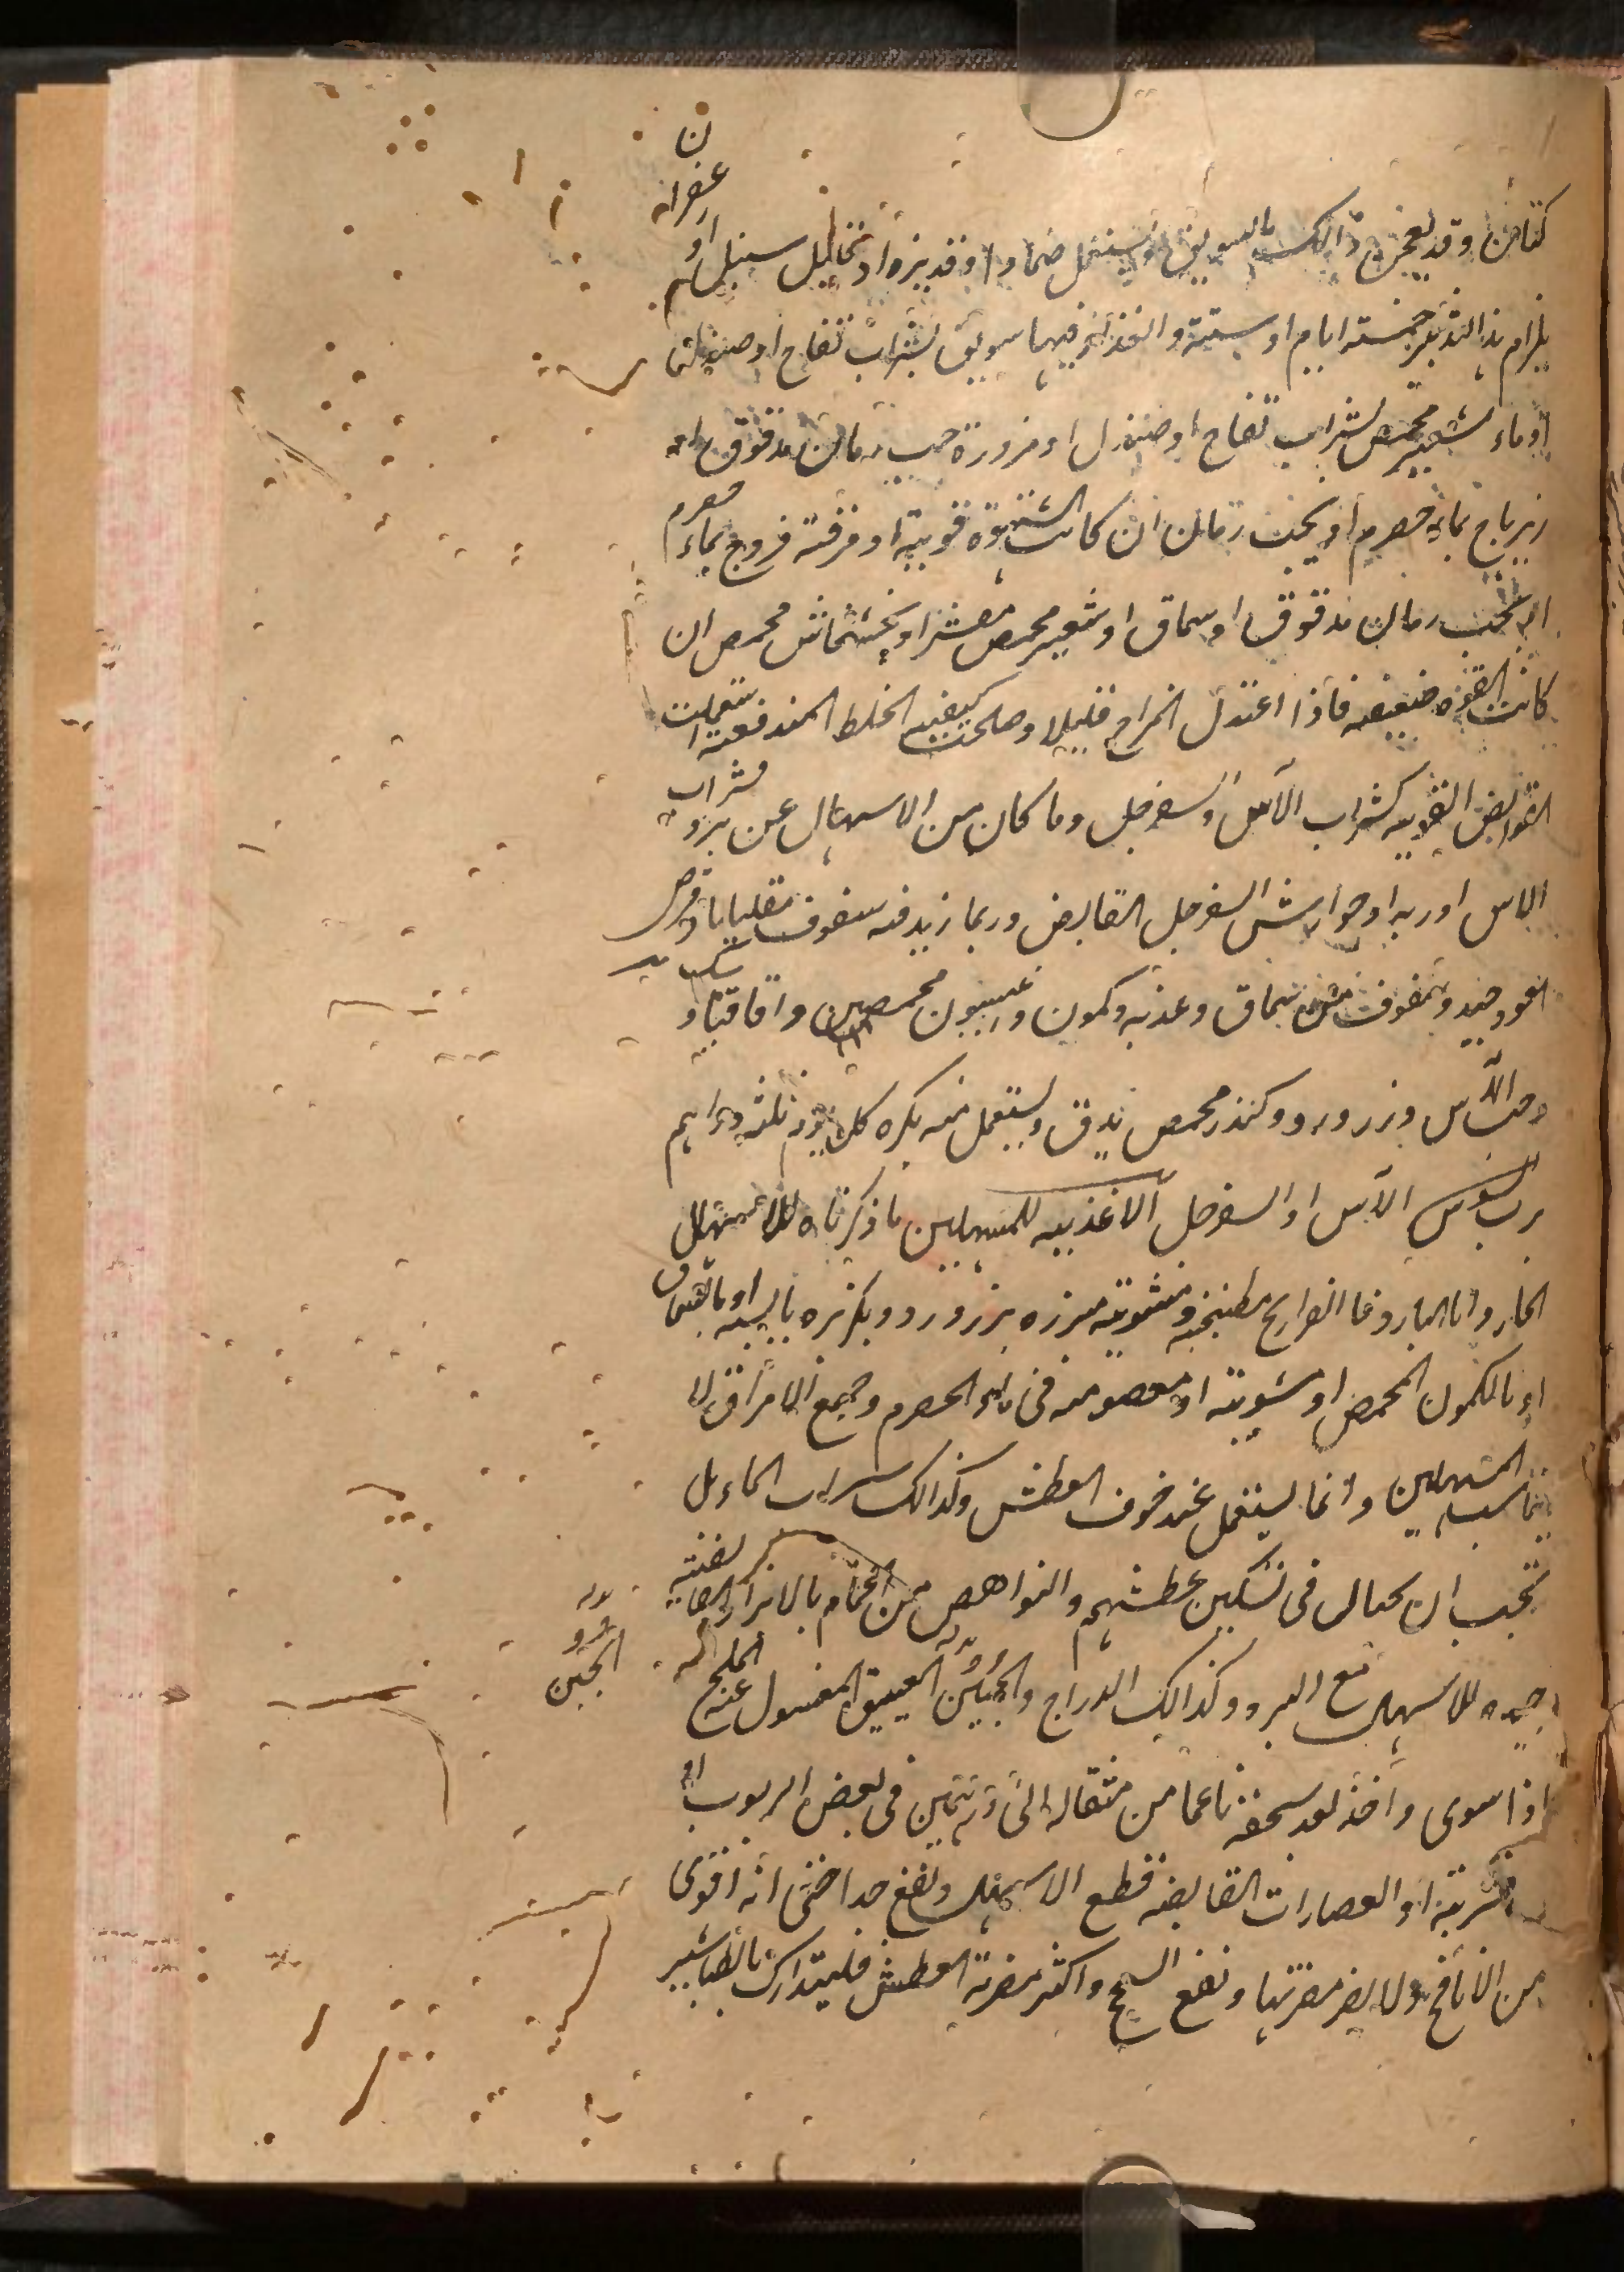 كتان وقد يعجن ذالك بالسويق ويستعمل ضمادا وقد يزاد قليل سنبل او زعفران
يلزم هذا التدبير خمسة ايام او ستة والغذاء فيها سويق بشراب تفاح او صندل
او ماء شعير محمص بشراب تفاح او صندل او مزورة حب رمان مدقوق او
زيرباج بماء حصرم او بحب رمان ان كانت الشهوة قوية او مرقة فروج بماء حصرم
او بحب رمان مدقوق او سماق او شعير محمص مقشر او بخشخاش محمص ان
كانت القوة ضعيفه فاذا اعتدل المزاج قليلا وصلحت كيفيه الخلط المندفع استعملت
القوابض القويه كشراب الآس والسفرجل وما كان من الاسهال عن برد فشراب
الاس او ربه او جوارش السفرجل القابض وربما زيد فيه سفوف مقلياثا وقرص
العود جيد وسفوف من سماق وعذبه وكمون وانيسون محمصين واقاقيا و
وحب الآس وزر ورد وكندر محمص يدق ويستعمل منه بكره كل يوم ثلثه دراهم
برب السوس الآس او السفرجل الاغذيه للمسهلين ما ذكرناه للاسهال
الحار واما البارد فالفراريج مطبخنه ومشويه مبزره بزر ورد وبكزبره يابسه او بالسماق
او بالكمون المحمص او مشويه او معصومه فى ماء الحصرم وجميع الامراق لا
يناسب المسهلين وانما يستعمل عند خوف العطش وكذالك شراب الماء بل
يجب ان يحتال فى تسكين عطشهم والنواهض من الحمام بالابزار القابضة
جيده للاسهال مع البرد وكذالك الدراج والجبن العتيق المغسول عنه الملح
الجبن
اذا سوى واخذ بعد سحقه ناعما من مثقال الى درهمين فى بعض الربوب او
الاشربة او العصارات القابضه قطع الاسهال ونفع جدا حتى انه اقوى
من الانافح ولا يضر مضرتها ونفع السحج واكثر مضرته العطش فليتدارك بالطباشير